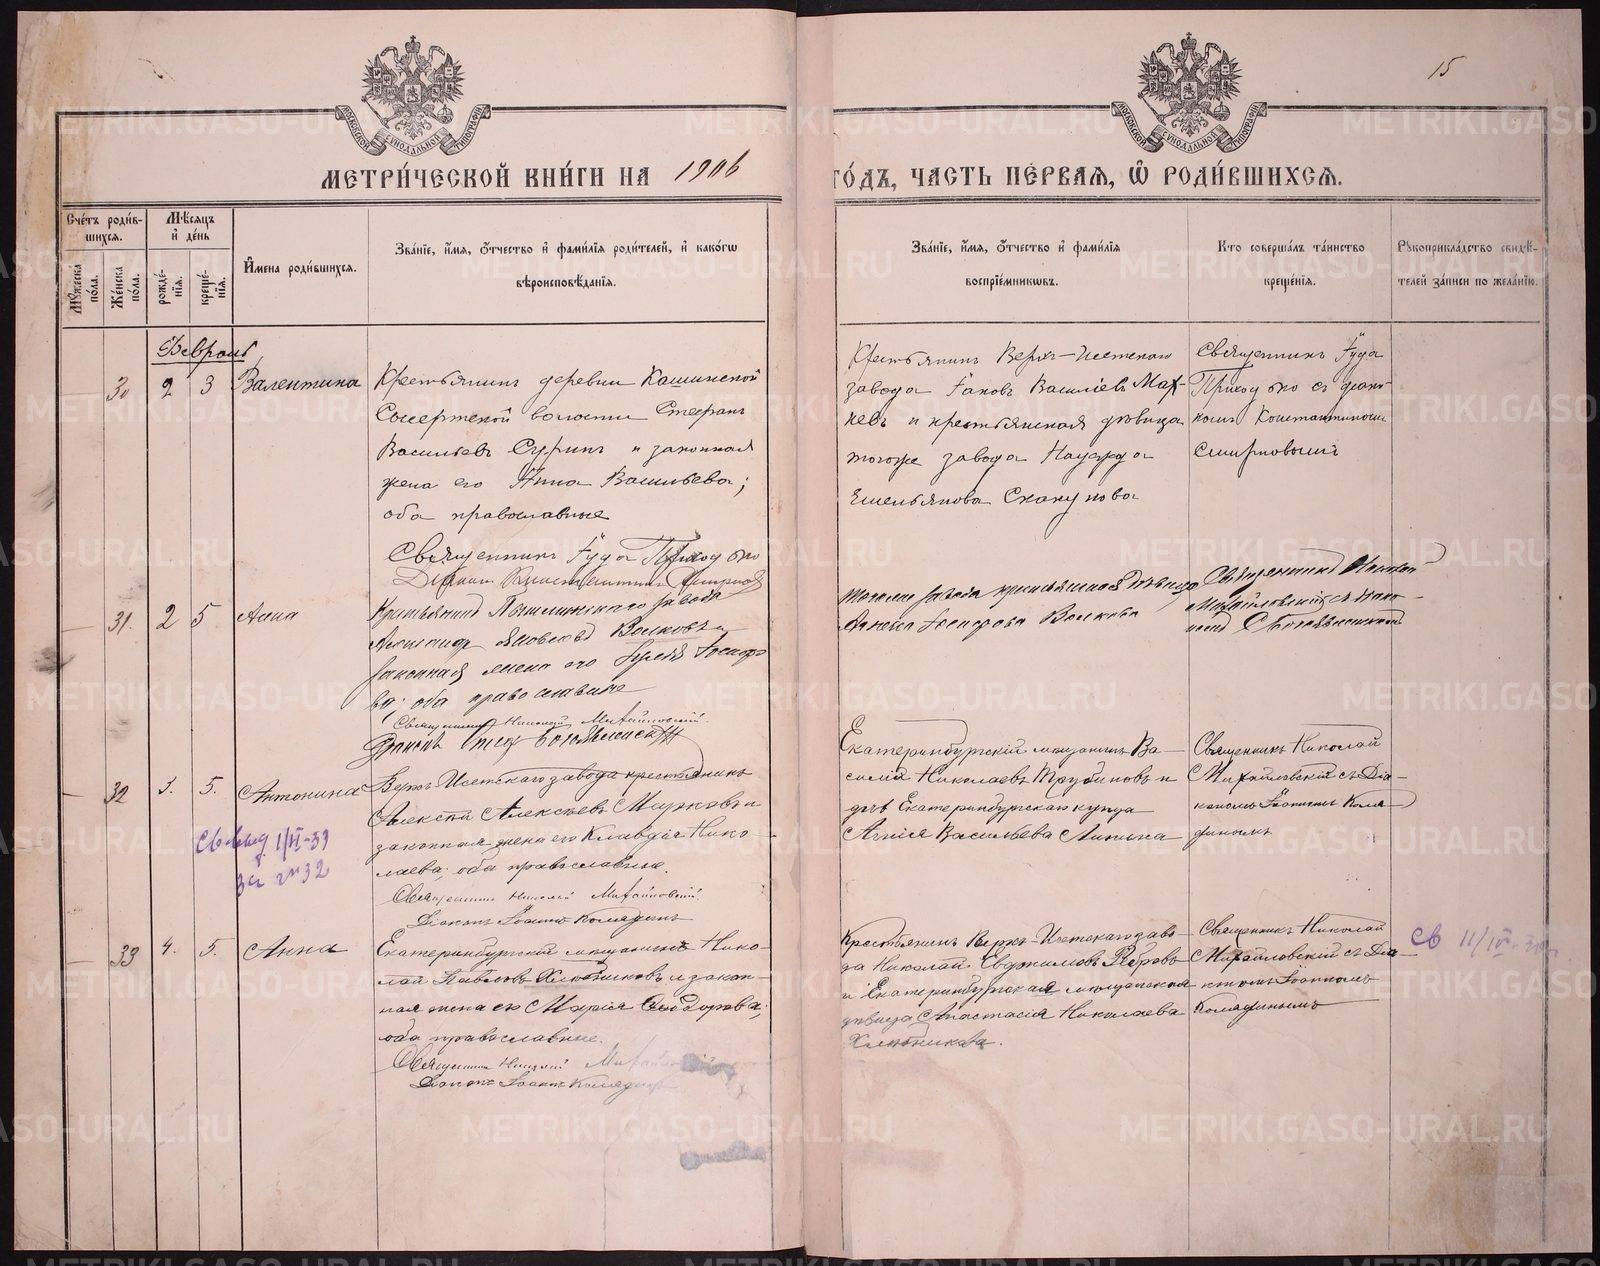 15
МОСКОВСКОЙ СѴНОДАЛЬНОЙ ТИПОГРАФІИ
МОСКОВСКОЙ СѴНОДАЛЬНОЙ ТИПОГРАФІИ
МЕТРИ́ЧЕСКОЙ КНИ́ГИ НА 1906
ГО́ДЪ, ЧАСТЬ ПЕ́РВАЯ, Ѿ РОДИ́ВШИХСЯ.
Сче́тъ роди́в-
шихся.
Мꙋ́жеска по́ла.
Же́нска по́ла.
Мѣ́сяцъ
и҆ де́нь
рожде́-
нїя.
креще́-
нїя.
И҆мена роди́вшихся.
Зва́нїе, и҆́мя, ѻ҆́тчество и҆ фами́лїя роди́телей, и҆ како́гѡ
вѣроисповѣ́данїя.
Зва́нїе, и҆́мя, ѻ҆́тчество и҆ фами́лїя
воспрїе́мникѡвъ.
Кто соверша́лъ та́инство
креще́нїя.
Рꙋкоприкла́дство свидѣ́-
телей за́писи по жела́нїю.
Февраль
30 2 3 Валентина
Крестьянинъ деревни Кашинской
Сысертской волости Стефанъ
Васильевъ Суринъ и законная
жена его Анна Васильева;
оба православные
Священникъ Іуда Приходько
Діаконъ Константинъ Смирновъ
Крестьянинъ Верхъ-Исетскаго
завода Іаковъ Василіевъ Мах-
невъ и крестьянская дѣвица
тогоже завода Надежда
Емельянова Скакунова
Священникъ Іуда
Приходько съ діако-
номъ Константиномъ
Смирновымъ
31. 2 5 Анна
Крестьянинъ Пышминскаго завода
Александръ Яковлевъ Волковъ и
законная жена его
ва; оба православные
Священникъ Николай Михайловскій
Діаконъ
тогоже завода крестьянская дѣвица
Волкова
Священникъ Николай
Михайловскій съ діако-
номъ
32 3. 5. Антонина
Верхъ-Исетскаго завода крестьянинъ
Алексѣй Алексѣевъ Марковъ и
законная жена его Клавдія Нико-
лаева; оба православные.
Священникъ Николай Михайловскій
Діаконъ Іоаннъ Колядинъ
1/VI-39
за № 32
Екатеринбургскій мѣщанинъ Ва-
силій Николаевъ Трубиновъ и
дочь Екатеринбургскаго купца
Агнія Васильева Липина
Священникъ Николай
Михайловскій съ Діа-
кономъ Іоанномъ Коля-
динымъ
33 4. 5. Анна
Екатеринбургскій мѣщанинъ Нико-
лай Павловъ Хлѣбниковъ и закон-
ная жена его Марія Ѳеодорова;
оба православные.
Священникъ Николай Михайловскій
Діаконъ Іоаннъ Колядинъ
Крестьянинъ Верхъ-Исетскаго заво-
да Николай Евфимовъ Ребровъ
и Екатеринбургская мѣщанская
дѣвица Анастасія Николаева
Хлѣбникова.
Священникъ Николай
Михайловскій съ Діа-
кономъ Іоанномъ
Колядинымъ
св
METRIKI.GASO-URAL.RU